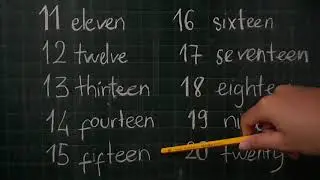 11 eleven
12 twelve
13 thirteen
14 fourteen
15 fifteen
16 sixteen
17 seventeen
18 eighteen
19
20 twenty